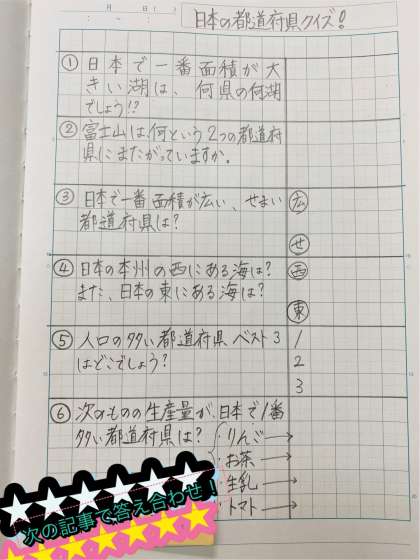 月　日（　）
日本の都道府県クイズ!
① 日本で一番面積が大
きい湖は、何県の何湖
でしょう!?
② 富士山は何という2つの都道府
県にまたがっていますか。
③ 日本で一番面積が広い、せまい
都道府県は?
広
せ
④ 日本の本州の西にある海は?
また、日本の東にある海は?
西
東
⑤ 人口の多い都道府県ベスト3
はどこでしょう?
1
2
3
⑥ 次のものの生産量が、日本で1番
多い都道府県は?
・りんご→
・お茶→
・生乳→
・トマト→
次の記事で答え合わせ!